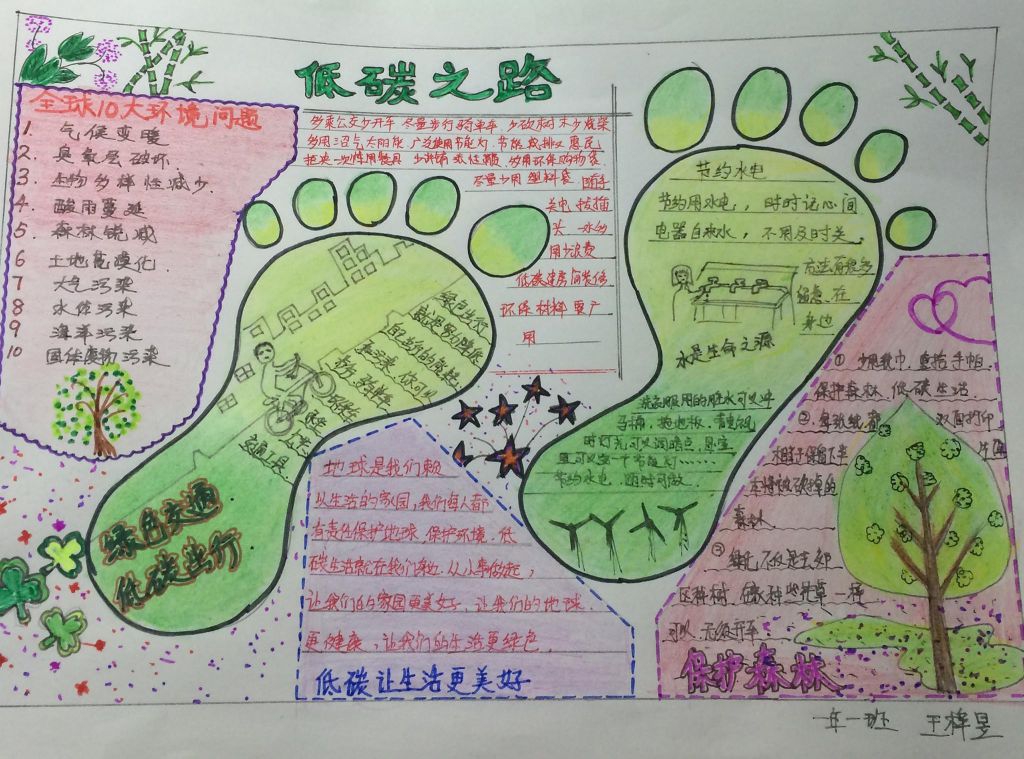 低碳之路
全球10大环境问题
1. 气候变暖
2. 臭氧层破坏
3. 生物多样性减少.
4. 酸雨蔓延
5. 森林锐减
6 土地荒漠化.
7 大气污染
8 水体污染
9 海洋污染
10 固体废物污染
多乘公交少开车 尽量步行骑单车 少砍树木少烧柴
多用沼气太阳能 广泛使用节能灯 节能减排
拒决一次性用餐具 多用环保购物袋
尽量少用塑料袋 随手
关电拔插
关一水的
用少浪费
低碳建房
环保材料要广
用
绿色出行
交通工具
绿色交通
低碳出行
节约水电
节约用水电，时时记心间
电器自来水，不用及时关.
方法有很多
留意在
身边
水是生命之源
洗衣服用的脏水可以冲
马桶，拖地板，看电视
时灯光可以调暗点，
节约水电，随时可做.
地球是我们赖
以生活的家园,我们每人都
有责任保护地球.保护环境.低
碳生活就在我们身边.从小事做起，
让我们的家园更美好，让我们的地球.
更健康，让我们的生活更绿色.
低碳让生活更美好
① 少用纸巾，重拾手帕.
保护森林 低碳生活.
② 每张纸都 双面打印
相当于保留下半 片
本将被砍掉的
森林
③
可以无须开车.
保护森林
一年一班 王梓昱